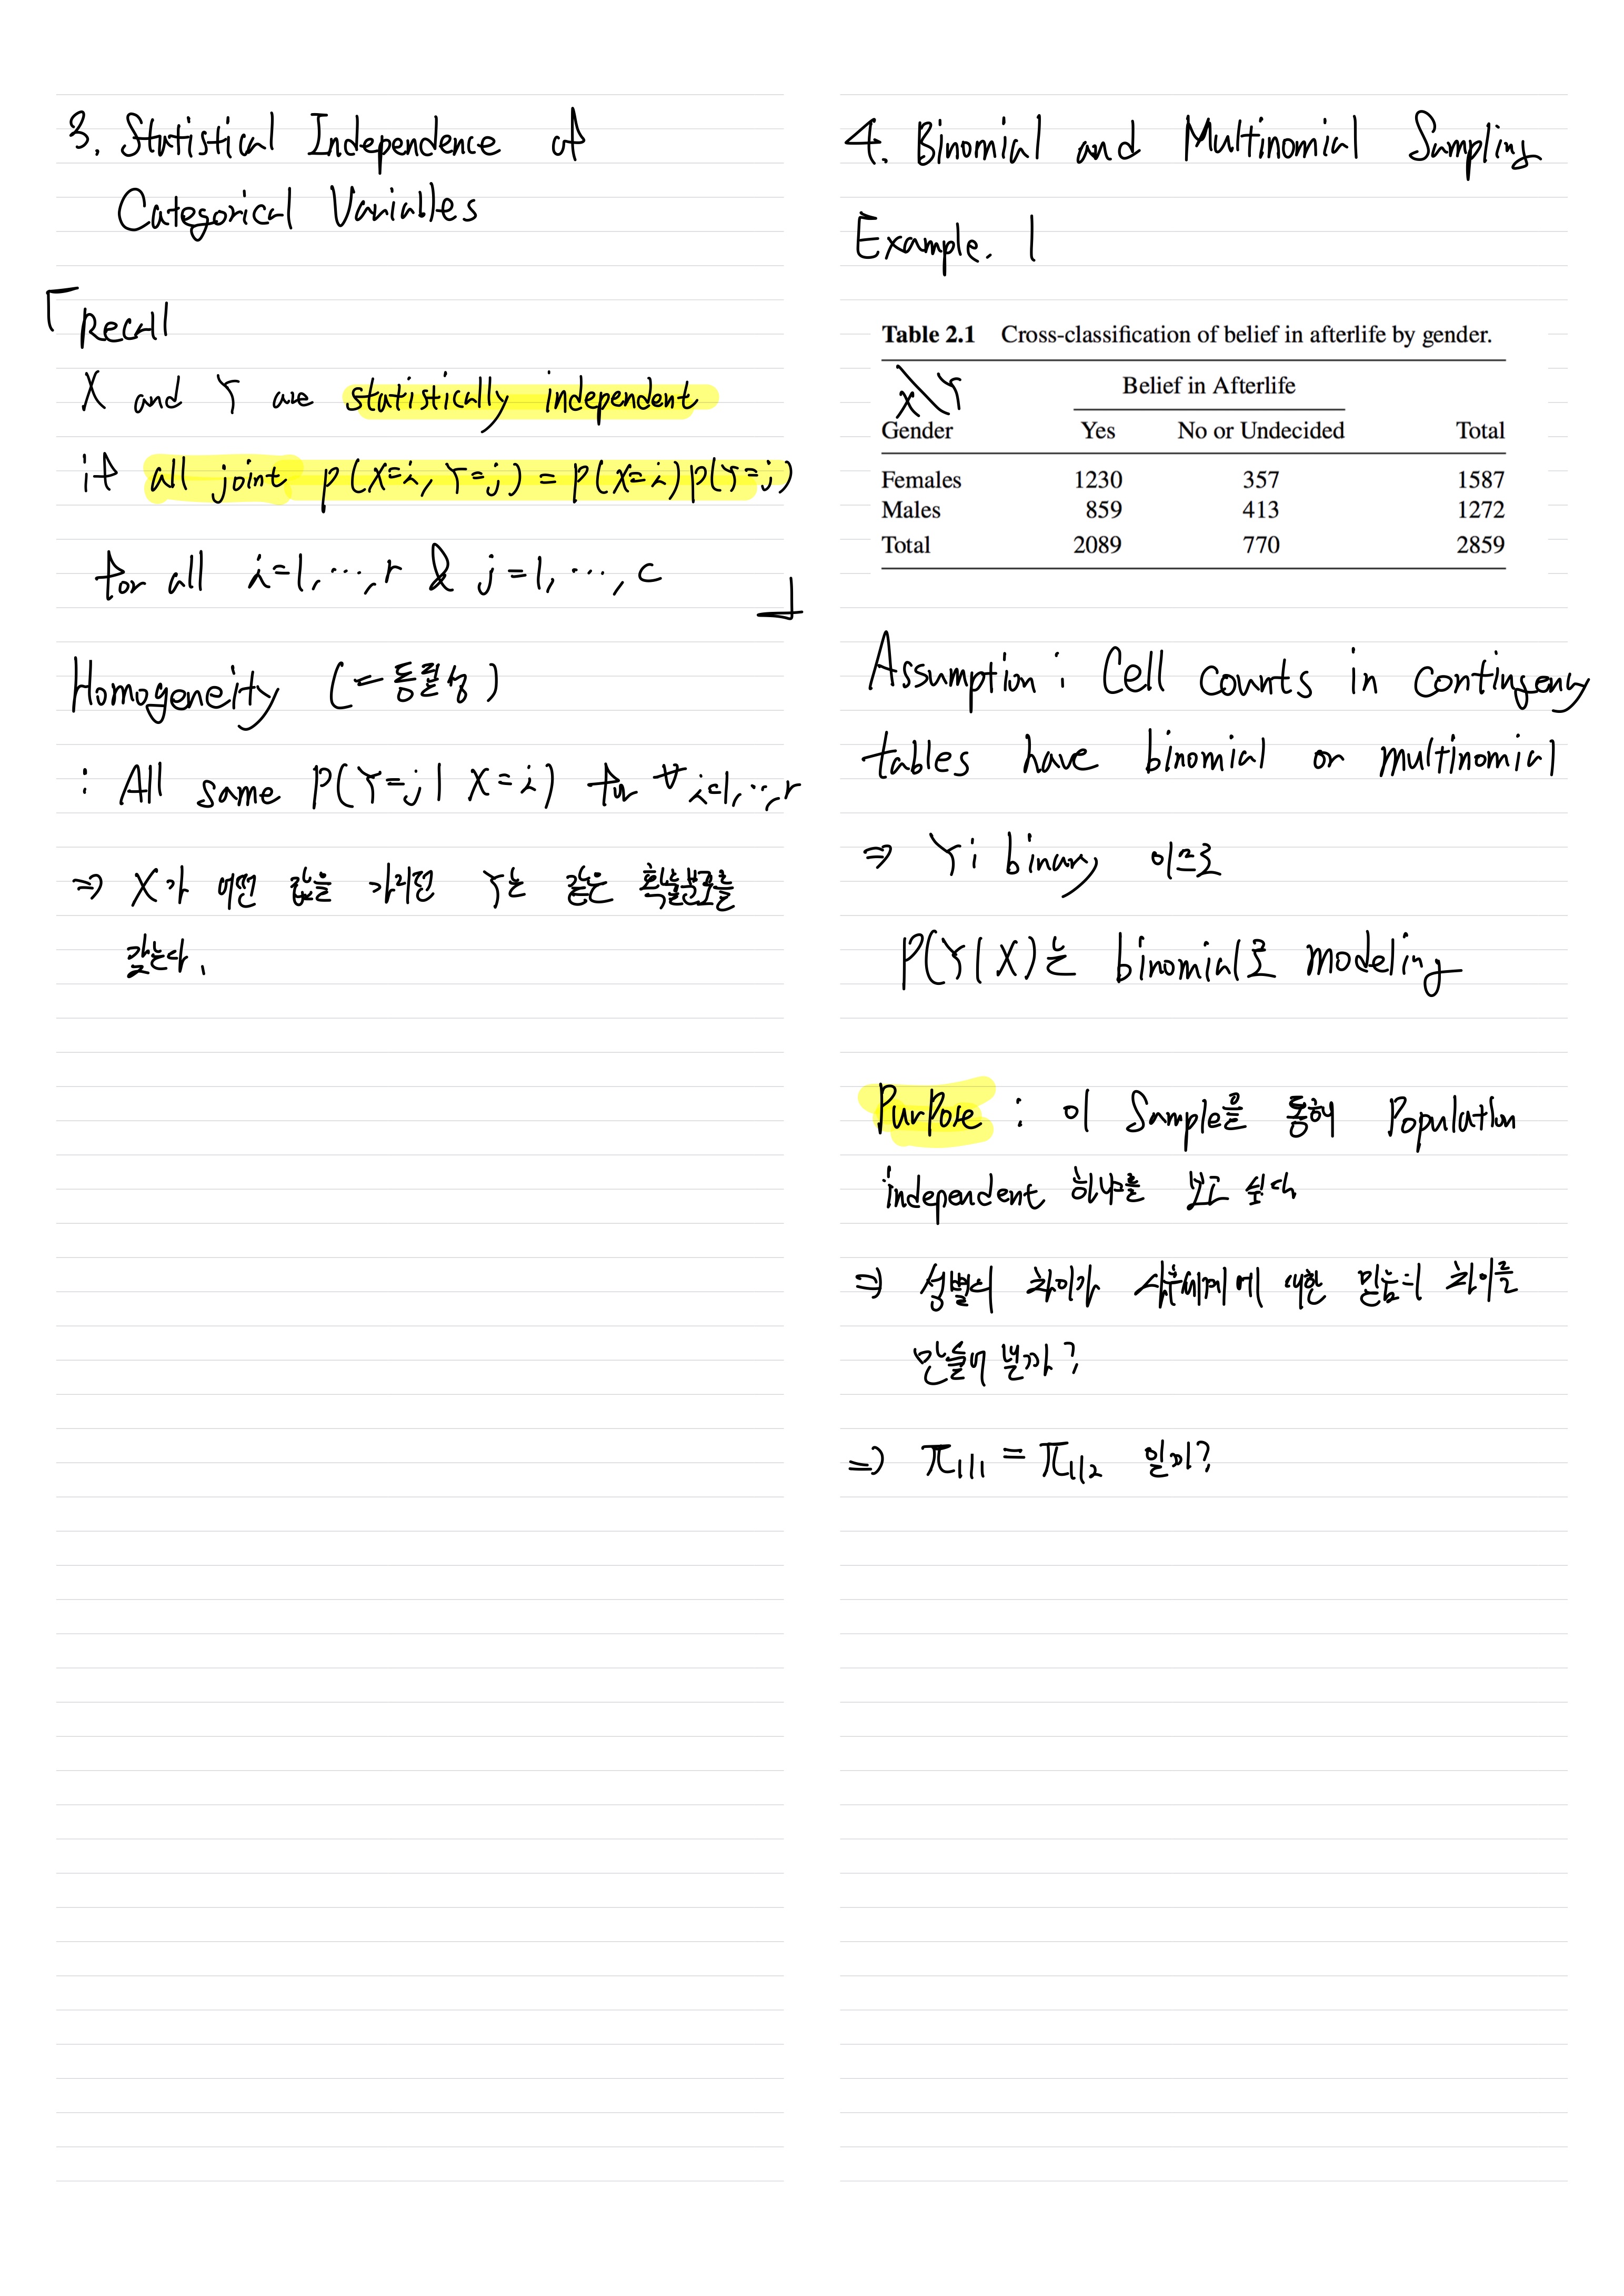 3. Statistical Independence of
Categorical Variables
Recall
X and Y are statistically independent
if all joint P(X=i, Y=j) = P(X=i)P(Y=j)
for all i=1, ..., r & j=1, ..., c
Homogeneity (= 동질성)
: All same P(Y=j | X=i) for ∀i=1, ..., r
⇒ X가 어떤 값을 가지던 Y는 같은 확률분포를
갖는다.
4. Binomial and Multinomial Sampling
Example. 1
Table 2.1 Cross-classification of belief in afterlife by gender.
X\Y Belief in Afterlife
Gender Yes No or Undecided Total
Females 1230 357 1587
Males 859 413 1272
Total 2089 770 2859
Assumption : Cell counts in contingency
tables have binomial or multinomial
⇒ Y: binary 이므로
P(Y|X)는 binomial로 modeling
Purpose : 이 Sample을 통해 Population
independent 하냐를 보고 싶다
⇒ 성별의 차이가 사후세계에 대한 믿음의 차이를
만들어 낼까?
⇒ π1|1 = π1|2 일까?